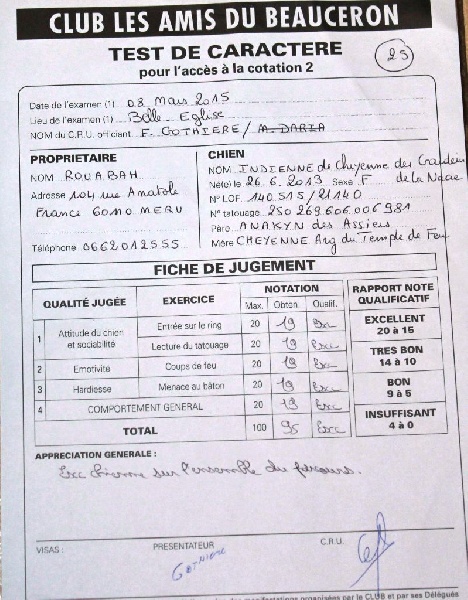 CLUB LES AMIS DU BEAUCERON
TEST DE CARACTERE
pour l'accès à la cotation 2
25
Date de l'examen (1) 08 Mars 2015
Lieu de l'examen (1) Belle Eglise
NOM du C.R.U. officiant F. GOTHIERE / M. DARIA
PROPRIETAIRE
NOM ROUABAH
Adresse 104 rue Anatole
France 60110 MERU
Téléphone 0662012555
CHIEN
NOM INDIENNE de Cheyenne des Gardiens
de la Noue
Né(e) le 26.6.2013 Sexe F
N° LOF 140 515 / 21140
N° tatouage 250 269 606 006 981
Père ANAKYN des Assiers
Mère CHEYENNE Ang du Temple de Feu
FICHE DE JUGEMENT
QUALITÉ JUGÉE EXERCICE NOTATION
Max. Obten. Qualif.
1 Attitude du chien et sociabilité Entrée sur le ring 20 19 Exc
Lecture du tatouage 20 19 Exc
2 Emotivité Coups de feu 20 19 Exc
3 Hardiesse Menace au bâton 20 19 Exc
4 COMPORTEMENT GENERAL 20 19 Exc
TOTAL 100 95 Exc
RAPPORT NOTE
QUALIFICATIF
EXCELLENT
20 à 15
TRES BON
14 à 10
BON
9 à 5
INSUFFISANT
4 à 0
APPRECIATION GENERALE :
Exc chienne sur l'ensemble du parcours.
VISAS : PRESENTATEUR C.R.U.
des manifestations organisées par le CLUB et par ses Délégués